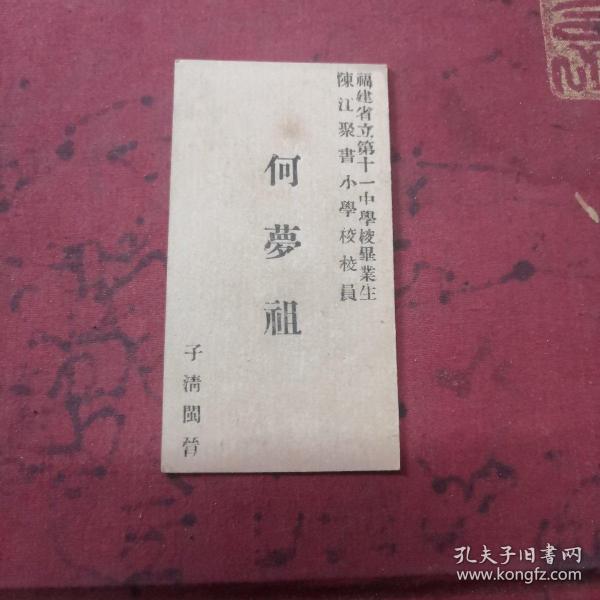 福建省立第十一中學校畢業生
陳江聚書小學校校員
何夢祖
子清閩晉
孔夫子旧书网
www.kongfz.com